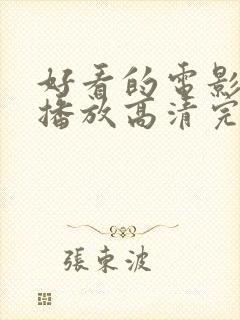 好看的电影
播放高清完
張東波